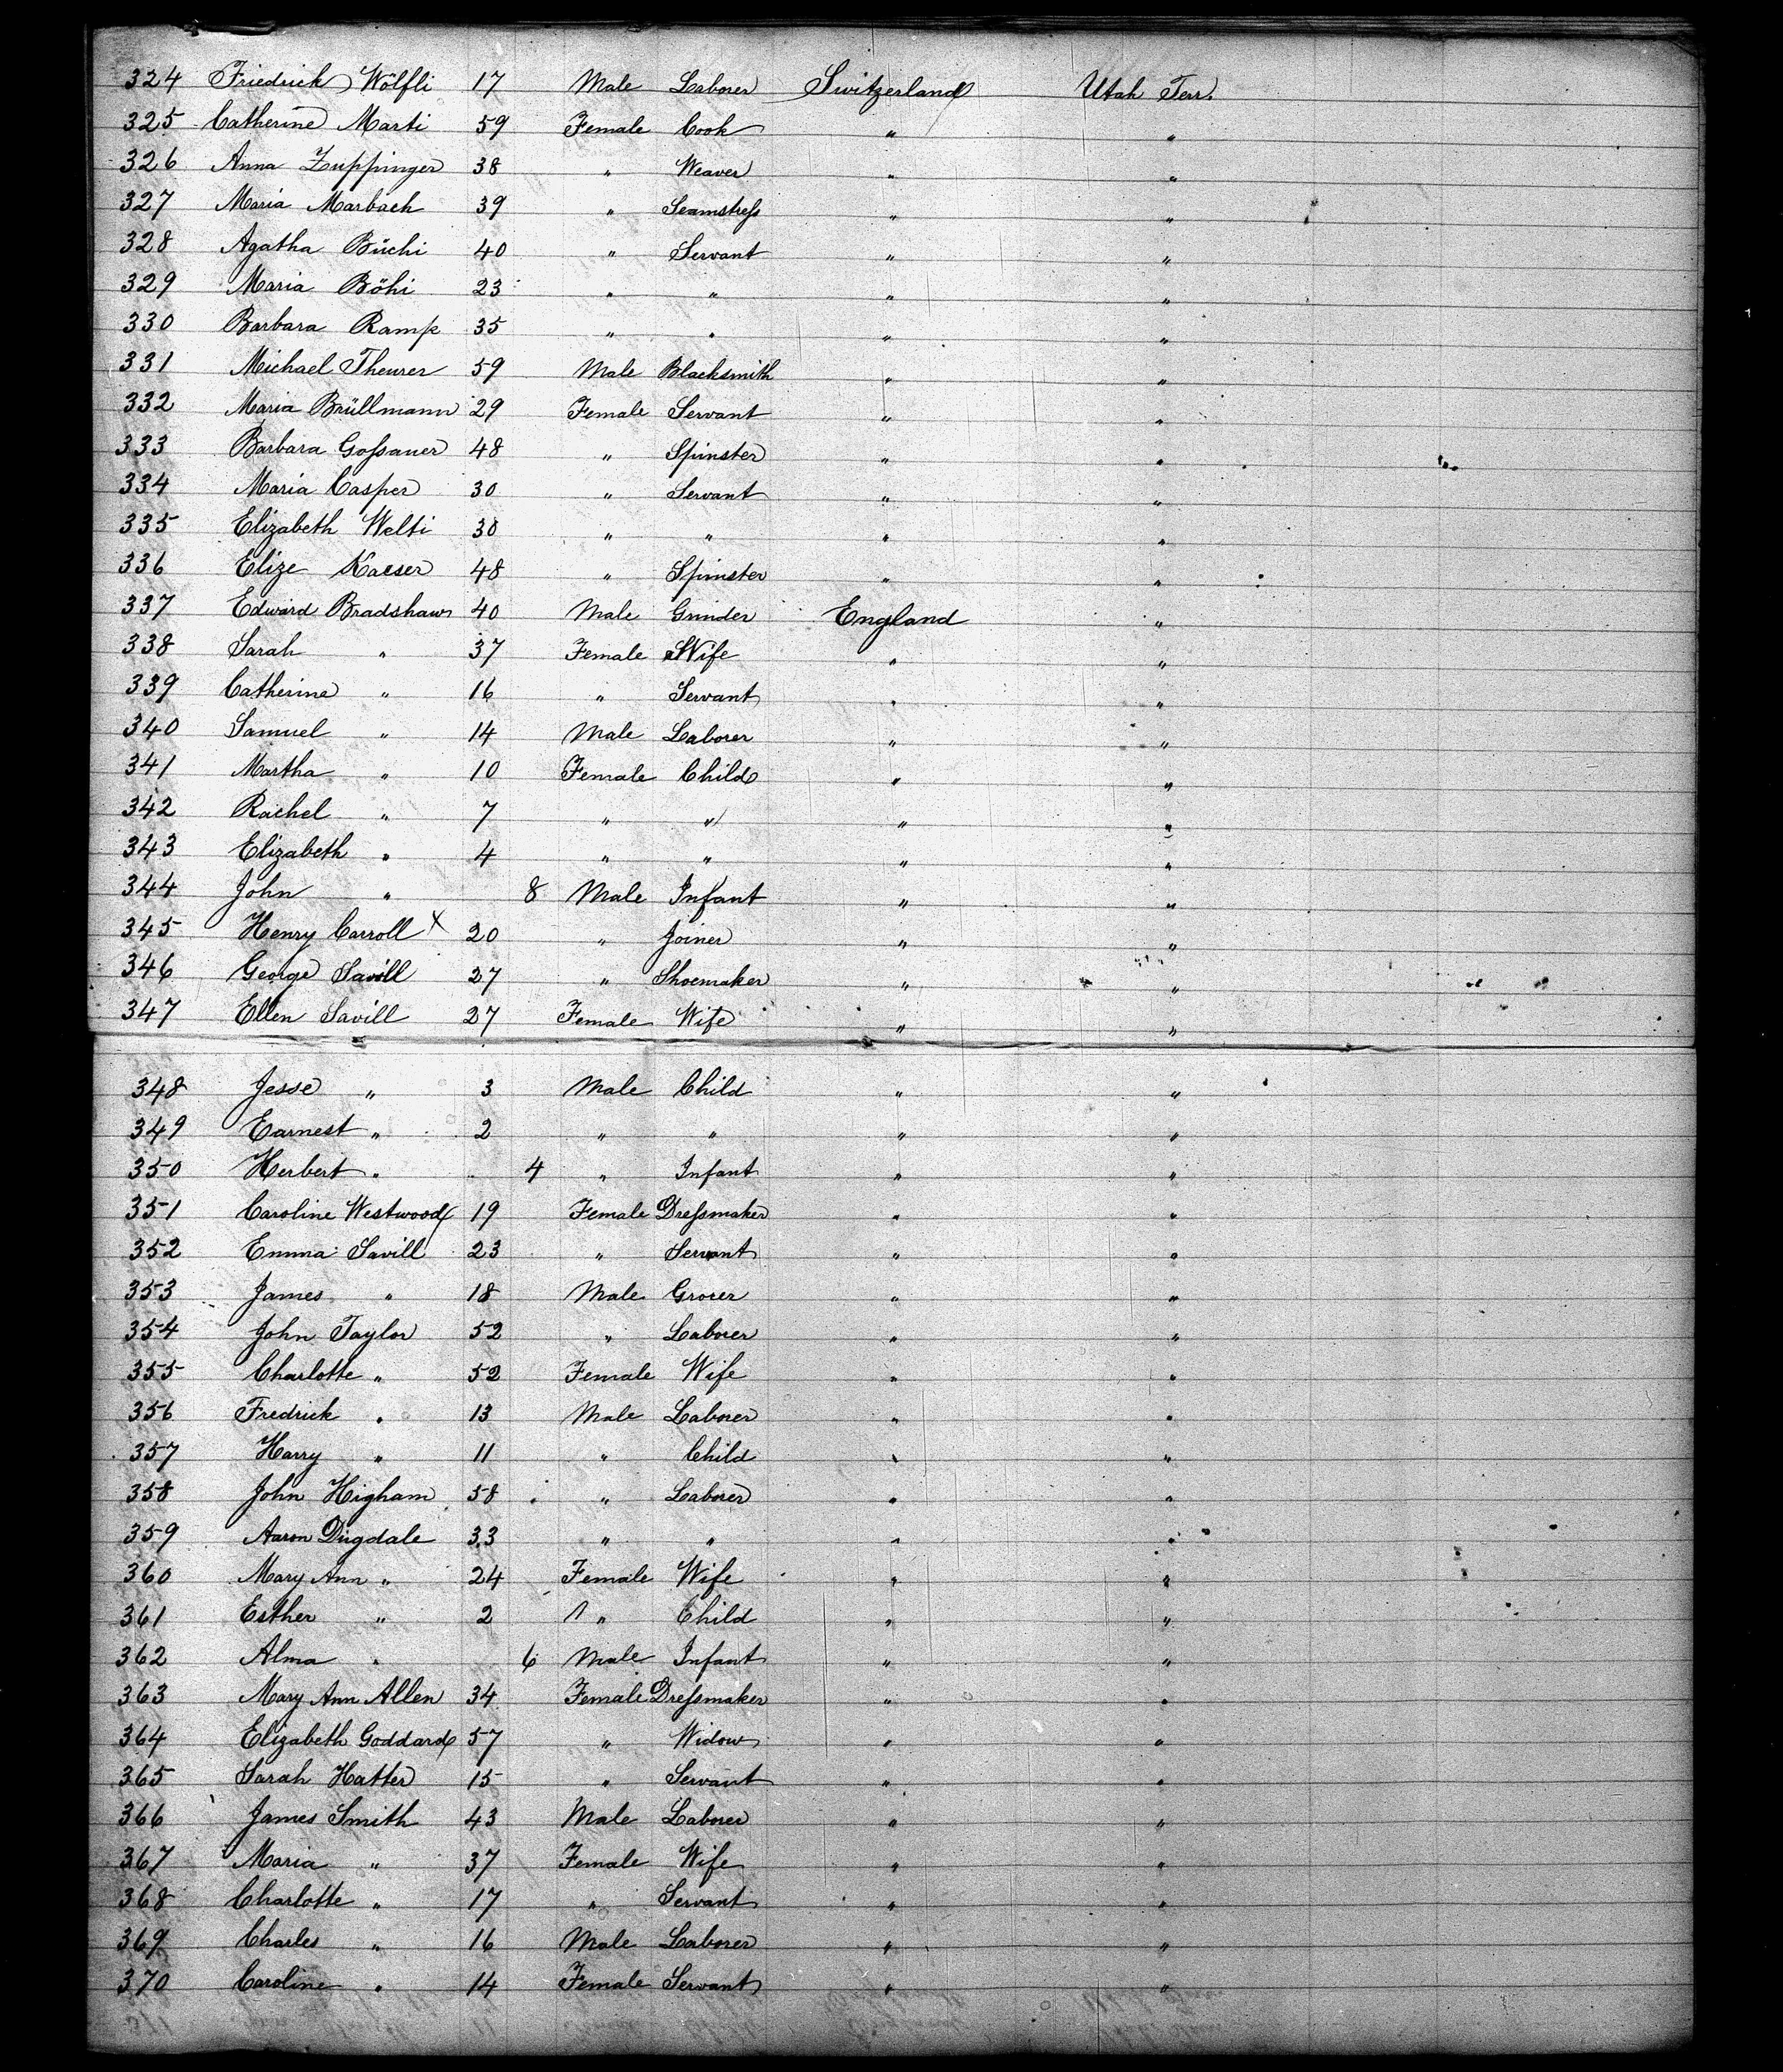 324 Friedrick Wölfli 17 Male Laborer Switzerland Utah Terr.
325 Catherine Marti 59 Female Cook " "
326 Anna Zuppinger 38 " Weaver " "
327 Maria Marbach 39 " Seamstress " "
328 Agatha Büchi 40 " Servant " "
329 Maria Böhi 23 " " " "
330 Barbara Ramp 35 " " " "
331 Michael Theurer 59 Male Blacksmith " "
332 Maria Brüllmann 29 Female Servant " "
333 Barbara Gossauer 48 " Spinster " "
334 Maria Casper 30 " Servant " "
335 Elizabeth Welti 30 " " " "
336 Elize Kaeser 48 " Spinster " "
337 Edward Bradshaw 40 Male Grinder England "
338 Sarah " 37 Female Wife " "
339 Catherine " 16 " Servant " "
340 Samuel " 14 Male Laborer " "
341 Martha " 10 Female Child " "
342 Rachel " 7 " " " "
343 Elizabeth " 4 " " " "
344 John " 8 Male Infant " "
345 Henry Carroll X 20 " Joiner " "
346 George Savill 27 " Shoemaker " "
347 Ellen Savill 27 Female Wife " "
348 Jesse " 3 Male Child " "
349 Earnest " 2 " " " "
350 Herbert " 4 " Infant " "
351 Caroline Westwood 19 Female Dressmaker " "
352 Emma Savill 23 " Servant " "
353 James " 18 Male Grocer " "
354 John Taylor 52 " Laborer " "
355 Charlotte " 52 Female Wife " "
356 Fredrick " 13 Male Laborer " "
357 Harry " 11 " Child " "
358 John Higham 58 " Laborer " "
359 Aaron Dugdale 33 " " " "
360 Mary Ann " 24 Female Wife " "
361 Esther " 2 " Child " "
362 Alma " 6 Male Infant " "
363 Mary Ann Allen 34 Female Dressmaker " "
364 Elizabeth Goddard 57 " Widow " "
365 Sarah Hatter 15 " Servant " "
366 James Smith 43 Male Laborer " "
367 Maria " 37 Female Wife " "
368 Charlotte " 17 " Servant " "
369 Charles " 16 Male Laborer " "
370 Caroline " 14 Female Servant " "